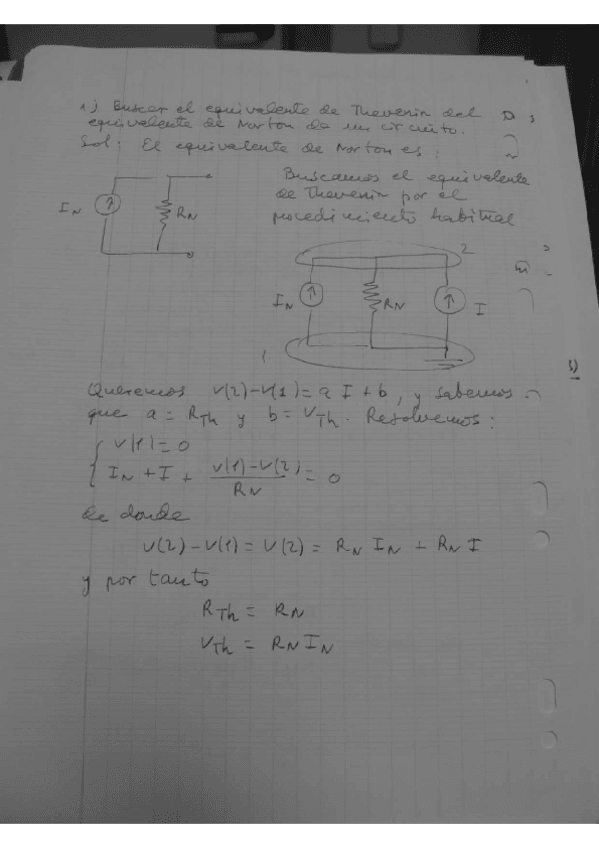 1) Buscar el equivalente de Thevenin del
equivalente de Norton de un circuito.
Sol: El equivalente de Norton es:
Buscamos el equivalente
de Thevenin por el
procedimiento habitual
I_N
R_N
2
I_N
R_N
I
1
Queremos V(2)-V(1) = a I + b, y sabemos
que a = R_Th y b = V_Th. Resolvemos:
V(1) = 0
I_N + I + (V(1)-V(2))/R_N = 0
de donde
V(2)-V(1) = V(2) = R_N I_N + R_N I
y por tanto
R_Th = R_N
V_Th = R_N I_N